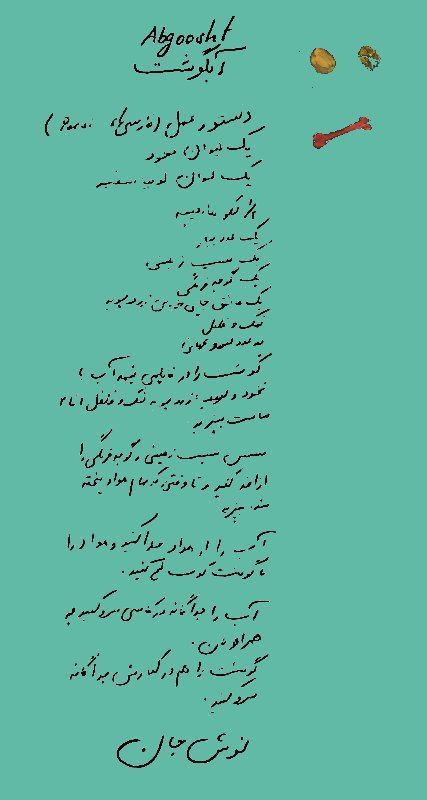 Abgoosht
آبگوشت
دستور عمل (فارسی، Parsi)
یک لیوان نخود
یک لیوان لوبیا سفید
کیلو ماهیچه
یک عدد پیاز
یک سیب زمینی
یک گوجه فرنگی
یک قاشق چای خوری زردچوبه
نمک و فلفل
عدد لیمو عمانی
گوشت را در قابلمه آب
نخود و لوبیا زردچوبه نمک و فلفل ۱ تا ۲
ساعت بپزید
سپس سیب زمینی و گوجه فرنگی را
اضافه کنید و تا وقتی که تمام مواد پخته
شد بپزید
آب را از مواد جدا کنید و مواد را
با گوشت کوب له کنید.
آب را جداگانه در کاسی سرو کنید به
همراه نان.
گوشت را هم در کنارش جداگانه
سرو کنید.
نوش جان